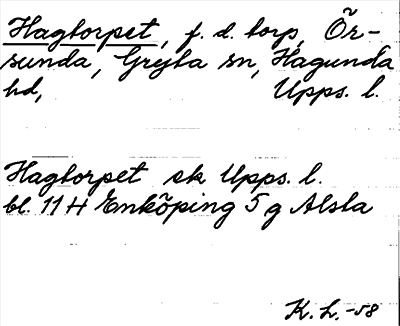 Hagtorpet, f. d. torp, Ör-
sunda, Gryta sn, Hagunda
hd, Upps. l.
Hagtorpet ek Upps. l.
bl. 11 H Enköping 5 g Alsta
K. L. -58